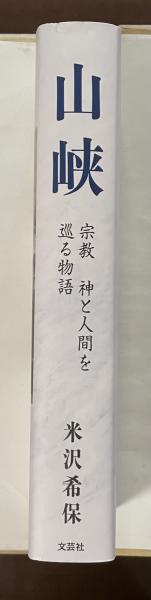 山峡
宗教 神と人間を
巡る物語
米沢希保
文芸社